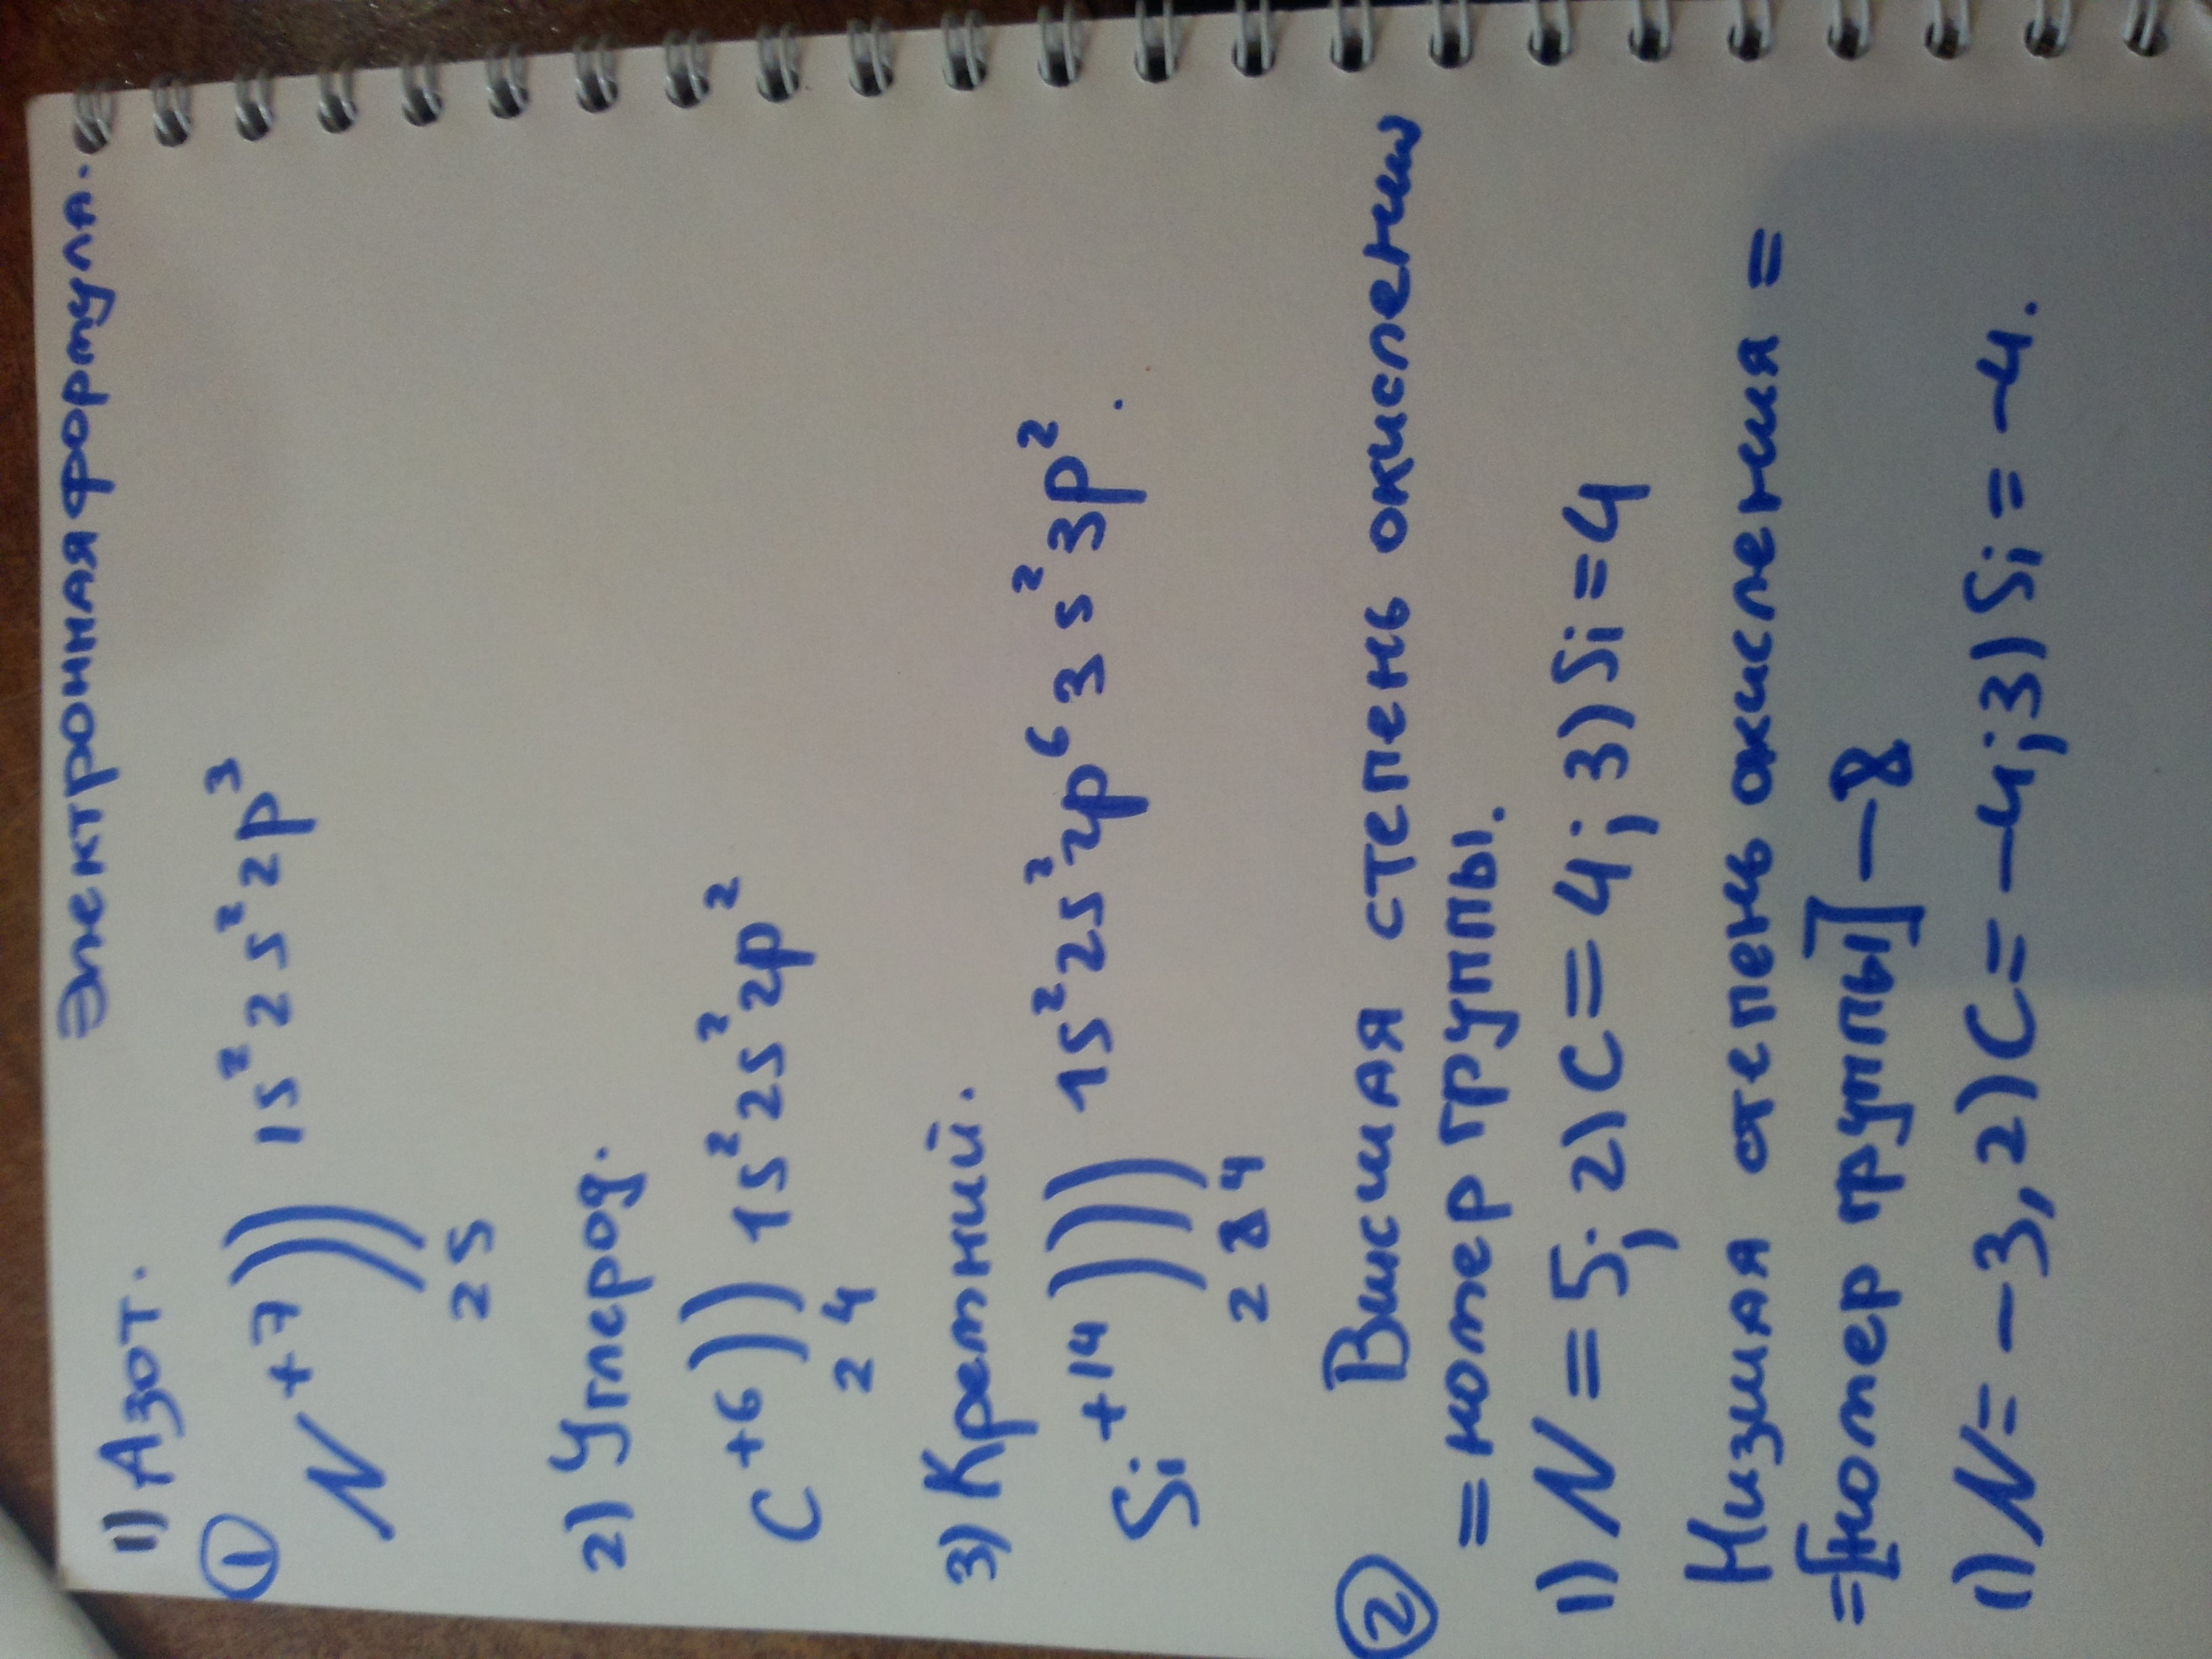 Электронная формула.
1) Азот.
① N +7 ) ) 1s² 2s² 2p³
2 5
2) Углерод.
C +6 ) ) 1s² 2s² 2p²
2 4
3) Кремний.
Si +14 ) ) ) 1s² 2s² 2p⁶ 3s² 3p².
2 8 4
② Высшая степень окисления
= номер группы.
1) N = 5; 2) C = 4; 3) Si = 4
Низшая степень окисления =
= [номер группы] – 8
1) N = –3, 2) C = –4; 3) Si = –4.